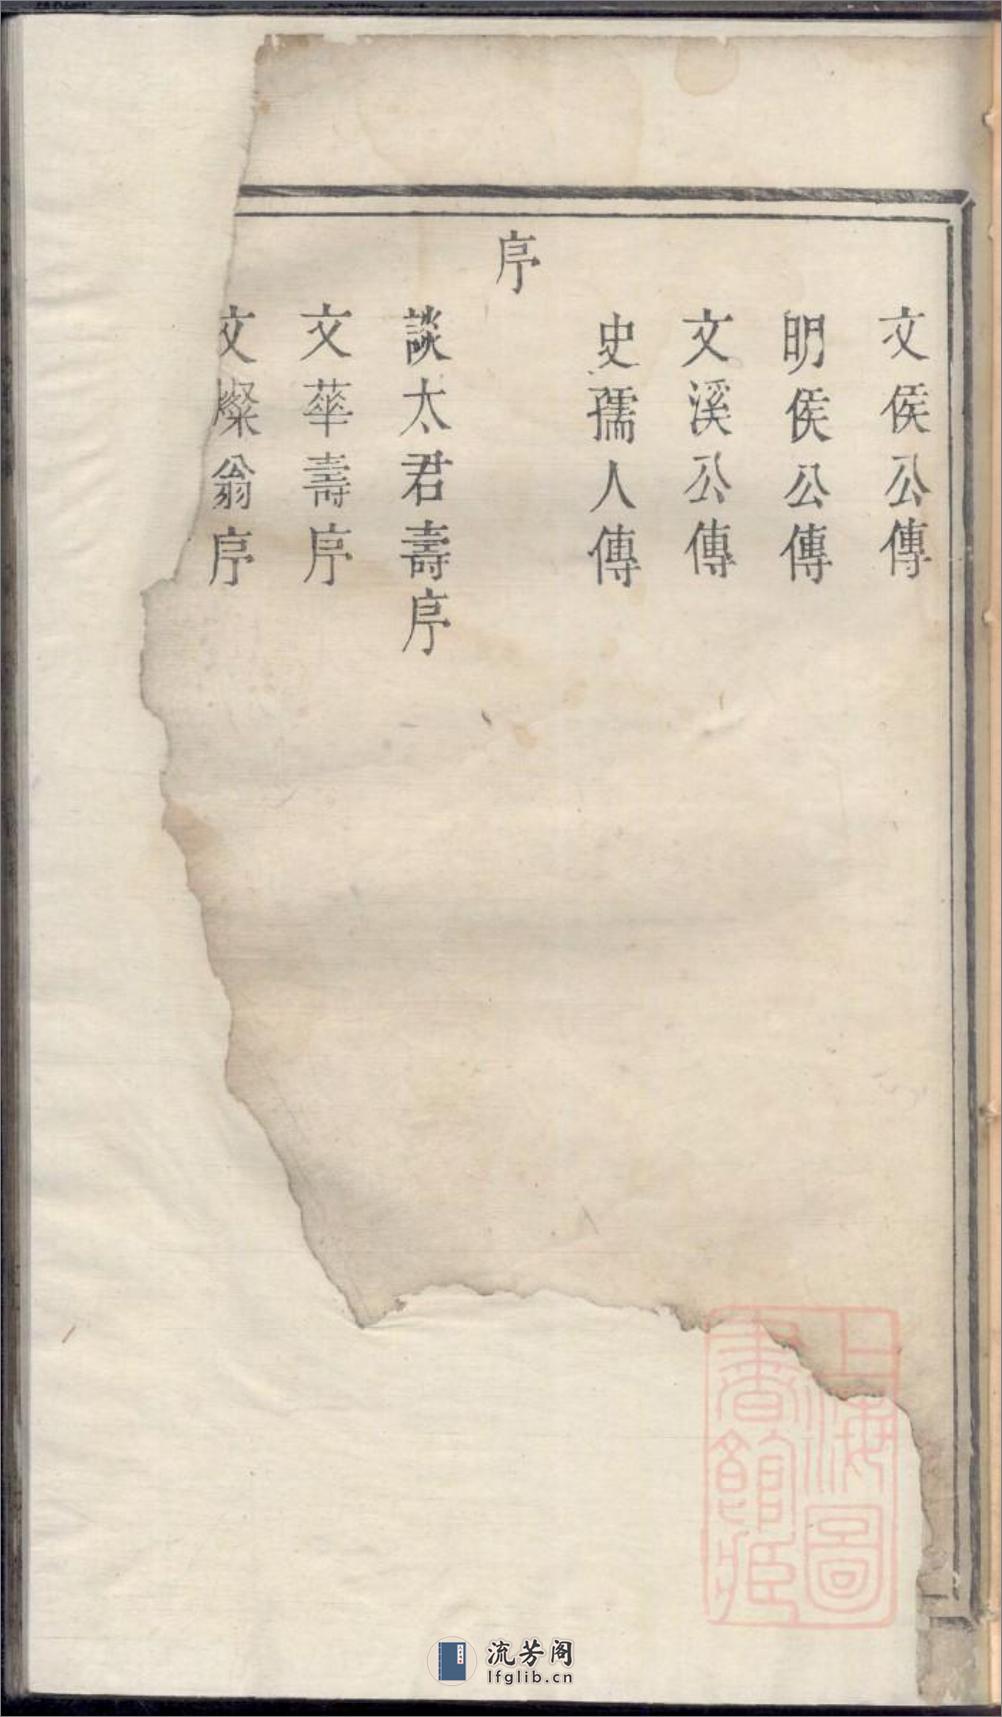 文侯公傳
明侯公傳
文溪公傳
史孺人傳
序
談太君壽序
文華壽序
文燦翁序
上海圖
書館藏
流芳阁
lfglib.cn